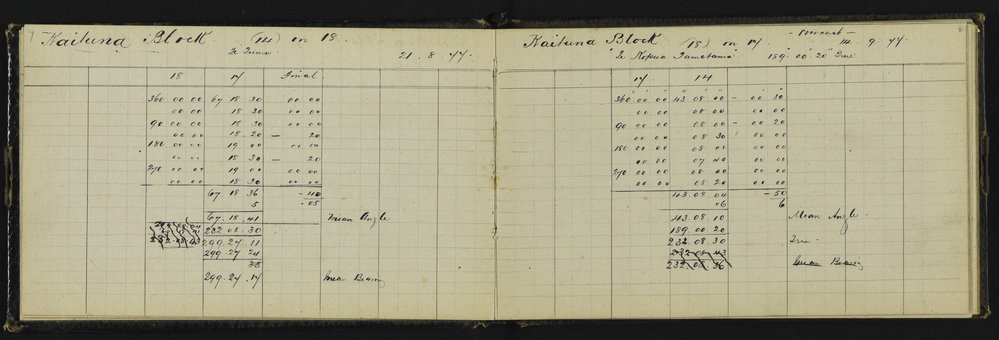 Kaituna Block (14) on 18
Te Tumu 21 . 8 . 77
18 17 Initial
360 00 00 67 18 30 00 00
00 00 18 30 00 00
90 00 00 18 30 00 00
00 00 18 20 — 20
180 00 00 19 00 00 00
00 00 18 30 — 20
270 00 00 19 00 00 00
00 00 18 30 00 00
67 18 36 - 40
5 - 05
67 . 18 . 41 Mean Angle
232 08 . 30
299 . 27 11
299 . 27 24
35
299 . 27 . 17 Mean Bearing
Kaituna Block (18) on 17 - Overcast -
"Te Kopua Tametama" 189° 00' 20" True 14 . 9 . 77
17 14
360 00 00 43 . 08 . 00 — 00 30
00 00 08 00 00 00
90 00 00 08 00 — 00 20
00 00 08 30 00 00
180 00 00 08 00 00 00
00 00 07 40 00 00
270 00 00 08 00 00 00
00 00 08 20 00 00
43 . 08 . 04 - 50
06 6
43 . 08 . 10 Mean Angle
189 . 00 20
232 . 08 . 30 True
232 08 43
232 . 08 36 Mean Bearing